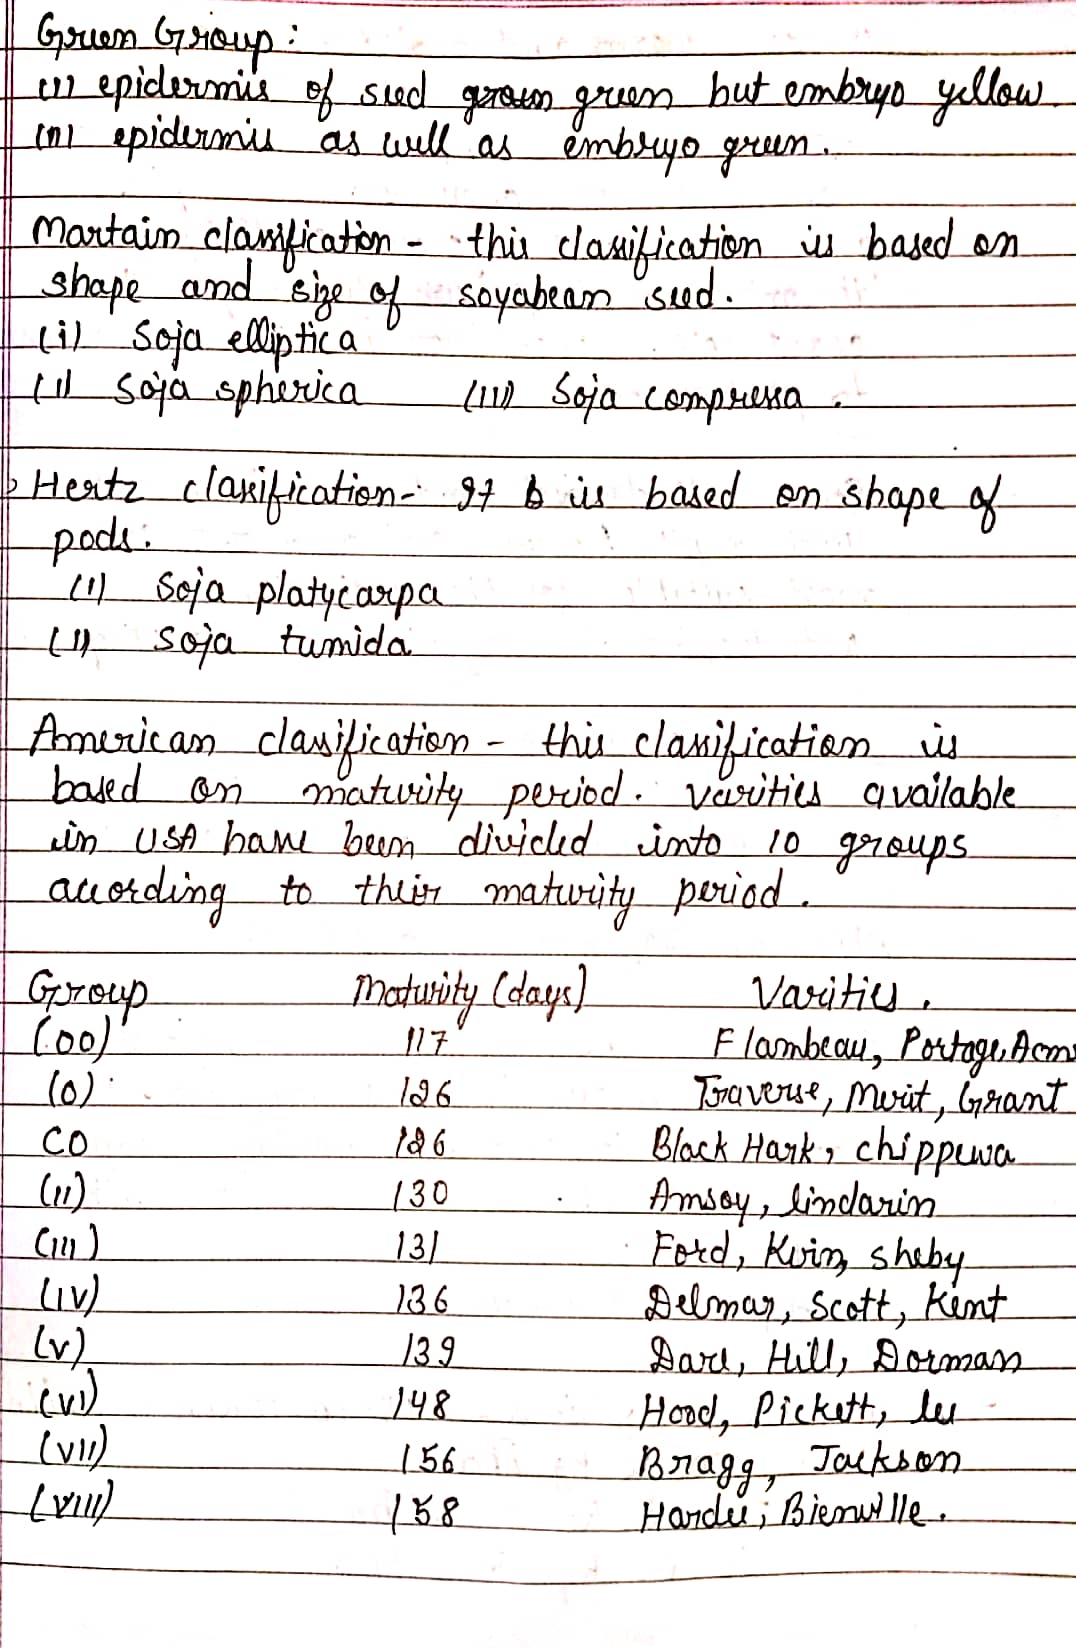 Green Group :
(i) epidermis of seed green but embryo yellow
(ii) epidermis as well as embryo green.
Martain classification - this classification is based on
shape and size of soyabean seed.
(i) Soja elliptica
(ii) Soja spherica (iii) Soja compressa.
Hertz classification- It is based on shape of
pods.
(i) Soja platycarpa
(ii) soja tumida
American classification - this classification is
based on maturity period. varities available
in USA have been divided into 10 groups
according to their maturity period.
Group Maturity (days) Varities.
(00) 117 Flambeau, Portage, Acm
(0) 126 Traverse, Merit, Grant
CO 126 Black Hark, chippewa
(ii) 130 Amsoy, lindarin
(iii) 131 Ford, sheby
(iv) 136 Delmar, Scott, Kent
(v) 139 Dare, Hill, Dorman
(vi) 148 Hood, Pickett, lee
(vii) 156 Bragg, Jackson
(viii) 158 Hardee, Bienville.